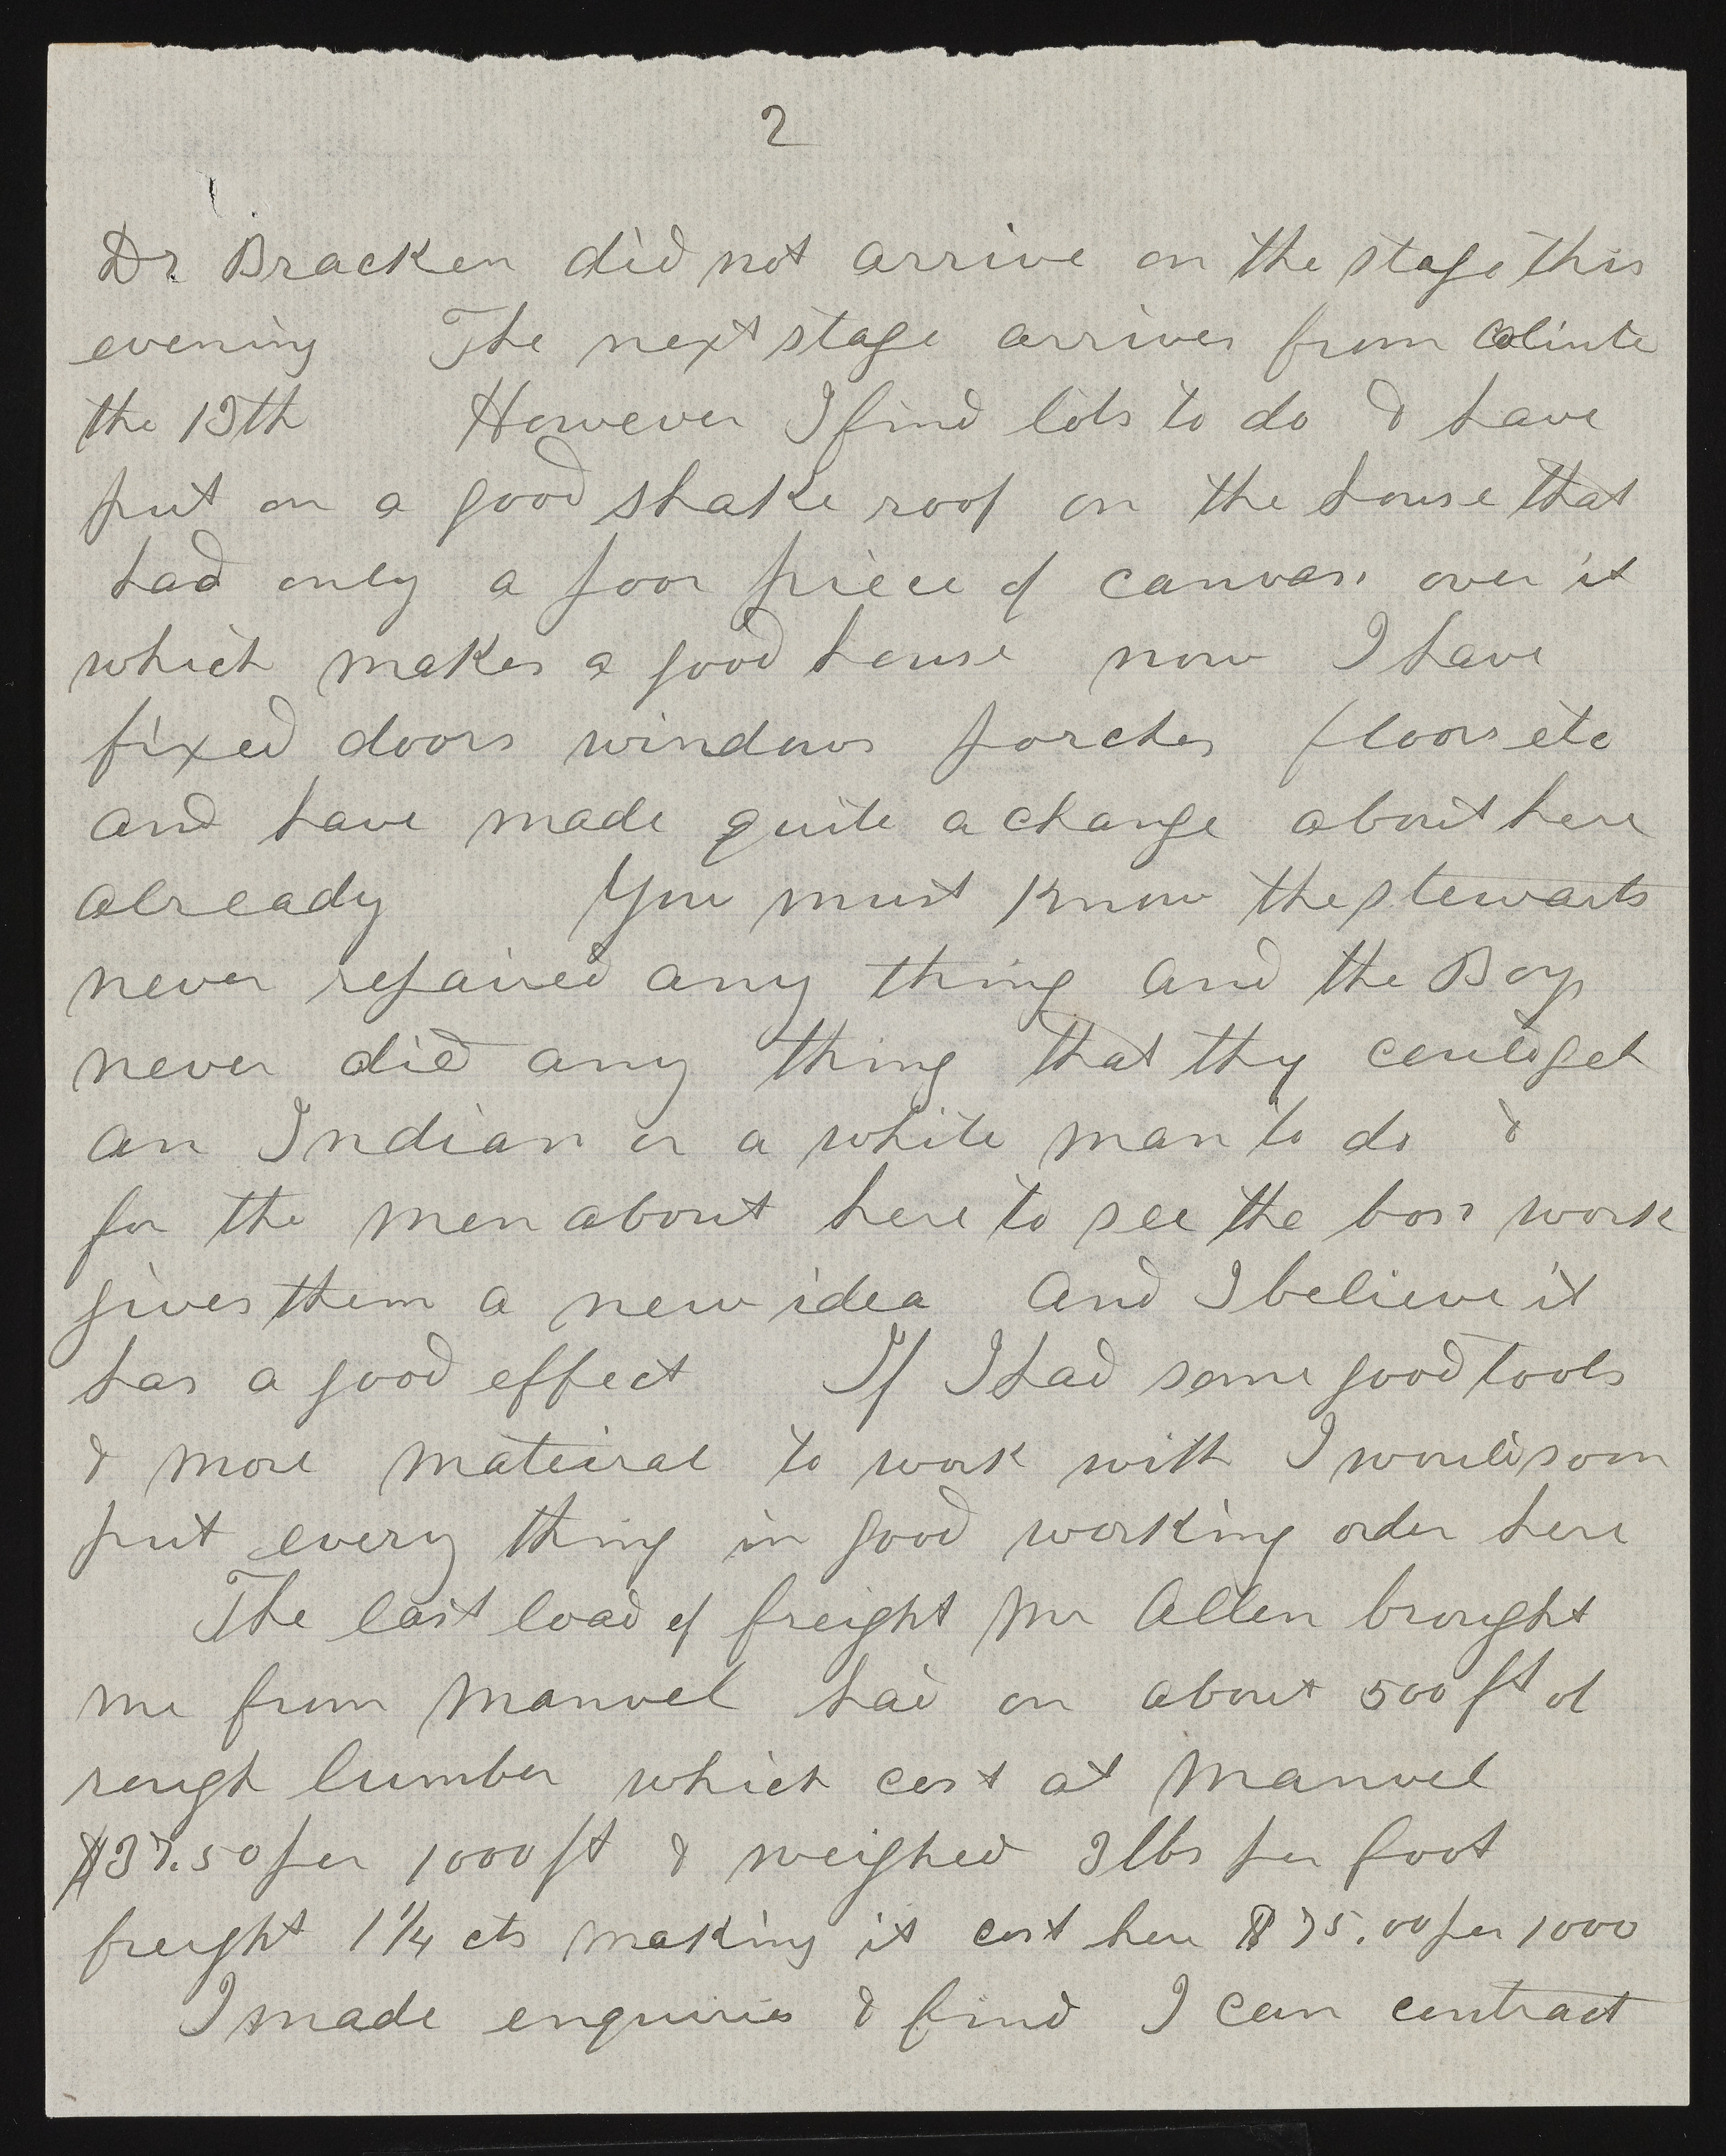 2
Dr Bracken did not arrive on the stage this
evening The next stage arrives from Calinte
the 13th However I find lots to do & have
put on a good shake roof on the house that
had only a poor piece of canvass over it
which makes a good house now I have
fixed doors windows porches floors etc
and have made quite a change about here
already You must know the stewarts
never repaired any thing and the Boys
never did any thing that thy could get
an Indian or a white man to do &
for the men about here to see the boss work
gives them a new idea and I believe it
has a good effect If I had some good tools
& more mateiral to work with I would soon
put every thing in good working order here
The last load of freight Mr Allen brought
me from Manvel had on about 500 ft of
rough lumber which cost at Manvel
$37.50 per 1000 ft & weighed 3 lbs per foot
freight 1 1/4 cts making it cost here $75.00 per 1000
I made enquiries & find I can contract